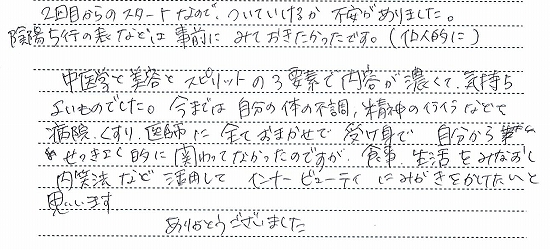 2回目からのスタートなので、ついていけるか 不安がありました。
陰陽5行の表などは 事前に みておきたかったです。(個人的に)
中医学と美容と スピリットの3要素で内容が 濃くて、気持ち
よいものでした。今までは 自分の体の不調、精神のイライラなどを
病院、くすり、医師に 全ておまかせで 受け身で 自分から
せっきょく的に 関わってなかったのですが、食事、生活をみなおし
内笑法など 活用して インナービューティ にみがきをかけたいと
思います
ありがとうございました